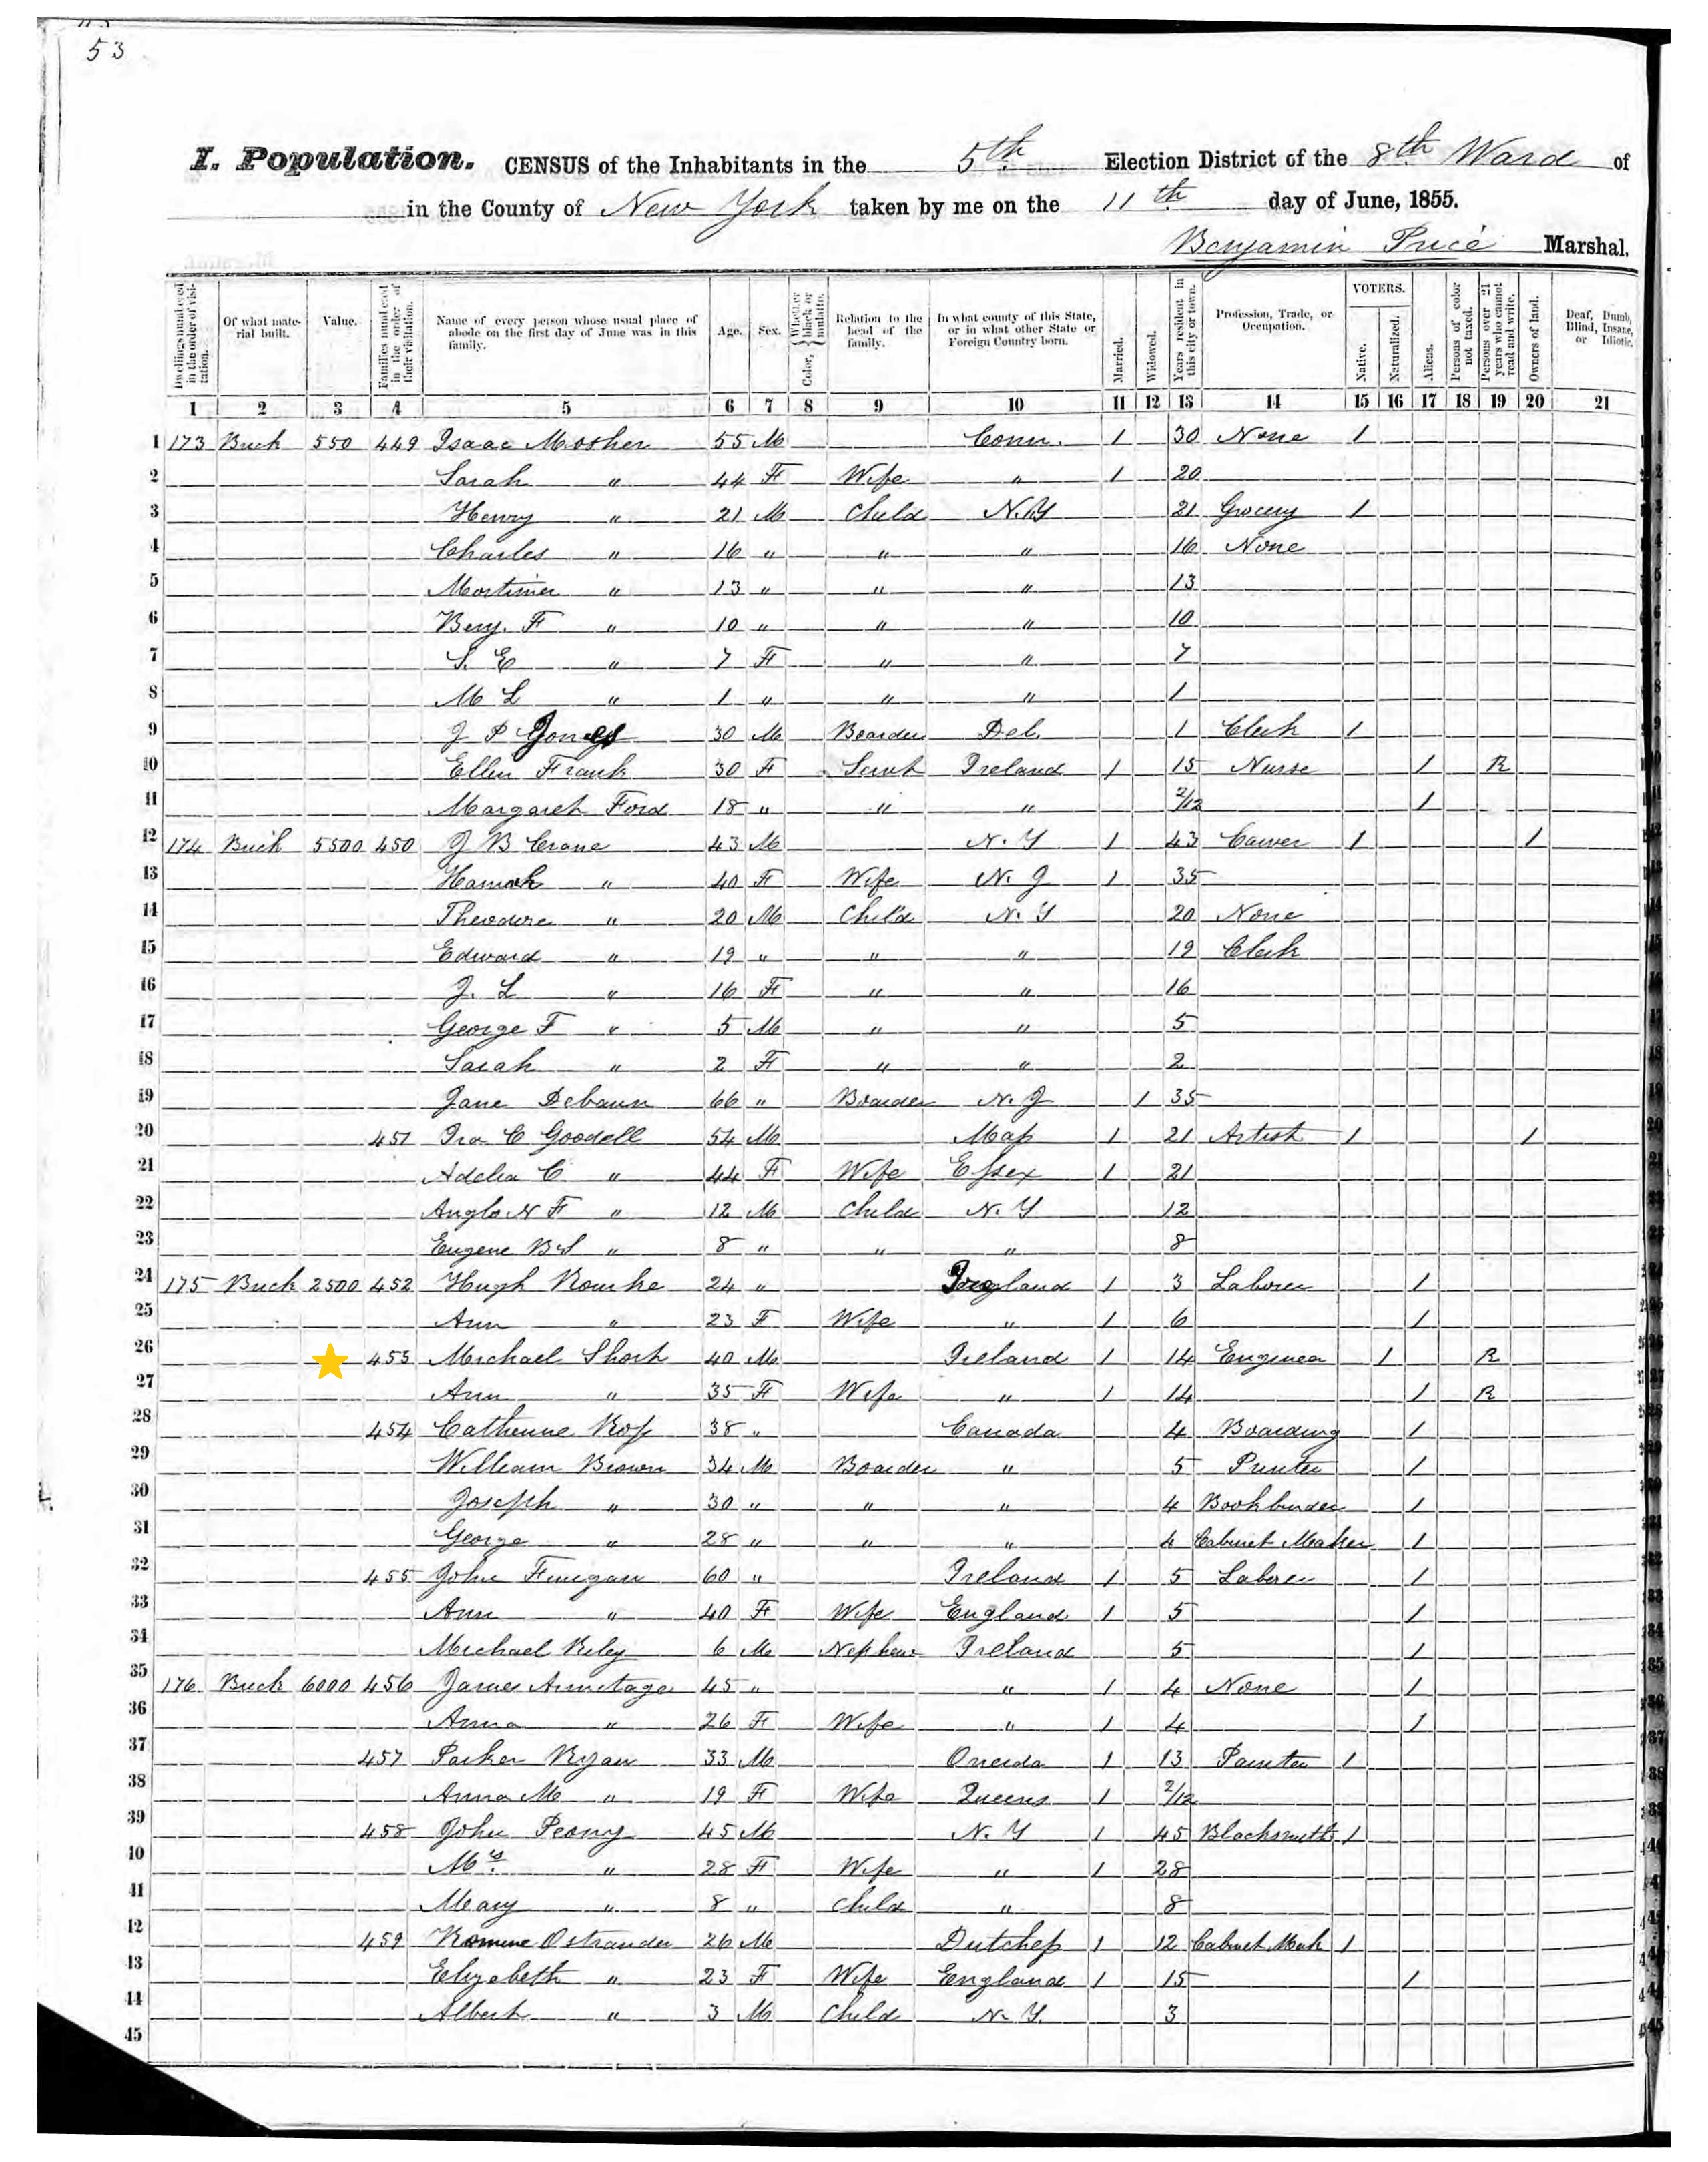 53
I. Population. CENSUS of the Inhabitants in the 5th Election District of the 8th Ward of
in the County of New York taken by me on the 11th day of June, 1855.
Benjamin Price Marshal.
Dwellings numbered in the order of visitation. Of what material built. Value. Families numbered in the order of their visitation. Name of every person whose usual place of abode on the first day of June was in this family. Age. Sex. Color, Whether black or mulatto. Relation to the head of the family. In what county of this State, or in what other State or Foreign Country born. Married. Widowed. Years resident in this city or town. Profession, Trade, or Occupation. VOTERS. Native. Naturalized. Aliens. Persons of color not taxed. Persons over 21 years who cannot read and write. Owners of land. Deaf, Dumb, Blind, Insane, or Idiotic.
1 2 3 4 5 6 7 8 9 10 11 12 13 14 15 16 17 18 19 20 21
1 173 Brick 550 449 Isaac Mosher 55 M Conn. 1 30 None 1
2 Sarah " 44 F Wife " 1 20
3 Henry " 21 M Child N.Y 21 Grocery 1
4 Charles " 16 " " " 16 None
5 Mortimer " 13 " " " 13
6 Benj. F " 10 " " " 10
7 S. E " 7 F " " 7
8 M L " 1 " " " 1
9 J P Jones 30 M Boarder Del. 1 Clerk 1
10 Ellen Frank 30 F Servt Ireland 1 15 Nurse 1 R
11 Margaret Ford 18 " " " 2/12 1
12 174 Brick 5500 450 J B Crane 43 M N. Y 1 43 Carver 1 1
13 Hannah " 40 F Wife N. J 1 35
14 Theodore " 20 M Child N. Y 20 None
15 Edward " 19 " " " 19 Clerk
16 J. L " 16 F " " 16
17 George F " 5 M " " 5
18 Sarah " 2 F " " 2
19 Jane Debaun 66 " Boarder N. J 1 35
20 451 Ira C Goodell 54 M Mass 1 21 Artist 1 1
21 Adelia C " 44 F Wife Essex 1 21
22 Anglo N F " 12 M Child N. Y 12
23 Eugene B S " 8 " " " 8
24 175 Brick 2500 452 Hugh Rourke 24 " England 1 3 Laborer 1
25 Ann " 23 F Wife " 1 6 1
26 453 Michael Short 40 M Ireland 1 14 Engineer 1 R
27 Ann " 35 F Wife " 1 14 1 R
28 454 Catherine Ross 38 " Canada 4 Boarding 1
29 William Brown 34 M Boarder " 5 Printer 1
30 Joseph " 30 " " " 4 Bookbinder 1
31 George " 28 " " " 4 Cabinet Maker 1
32 455 John Finegan 60 " Ireland 1 5 Laborer 1
33 Ann " 40 F Wife England 1 5 1
34 Michael Riley 6 M Nephew Ireland 5 1
35 176 Brick 6000 456 James Armitage 45 " " 1 4 None 1
36 Anna " 26 F Wife " 1 4 1
37 457 Parker Ryan 33 M Oneida 1 13 Painter 1
38 Anna M " 19 F Wife Queens 1 2/12
39 458 John Peany 45 M N. Y 1 45 Blacksmith 1
40 Mrs " 28 F Wife " 1 28
41 Mary " 8 " Child " 8
42 459 Ostrander 26 M Dutchess 1 12 Cabinet Mak 1
43 Elizabeth " 23 F Wife England 1 15 1
44 Albert " 3 M Child N. Y. 3
45